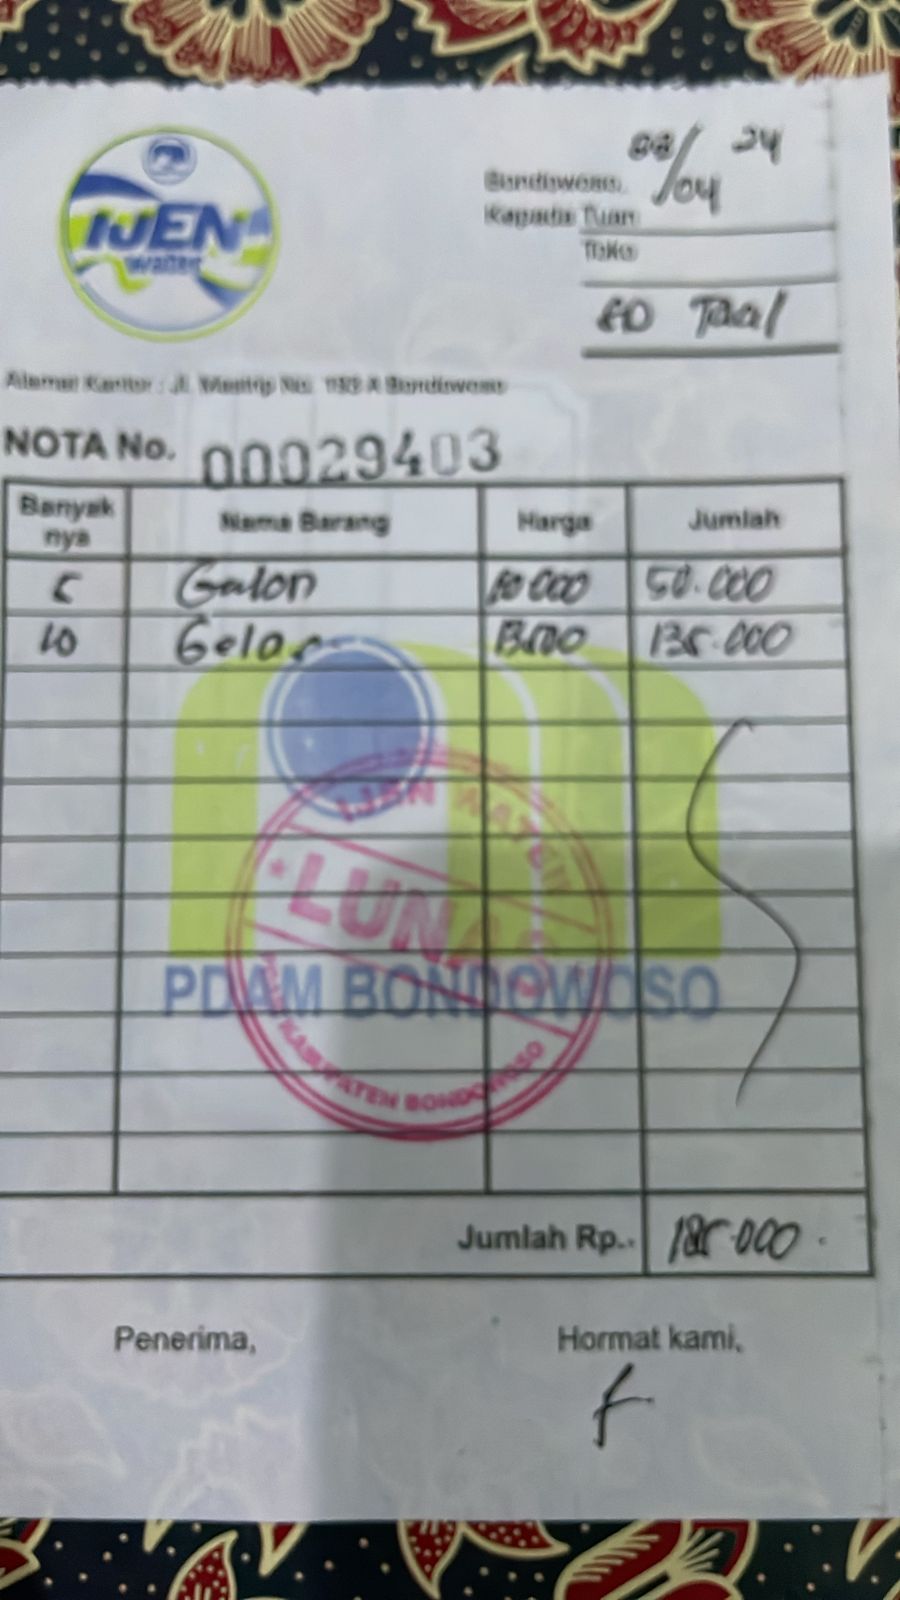 IJEN
Water
Bondowoso, 22/04 24
Kepada Tuan
Toko
SD Taal
Alamat Kantor : Jl. Mastrip No. A Bondowoso
NOTA No. 00029403
Banyak nya Nama Barang Harga Jumlah
5 Galon 10 000 50.000
10 Gelas 13500 135.000
LUNAS
PDAM BONDOWOSO
KABUPATEN BONDOWOSO
Jumlah Rp.. 185.000
Penerima, Hormat kami,